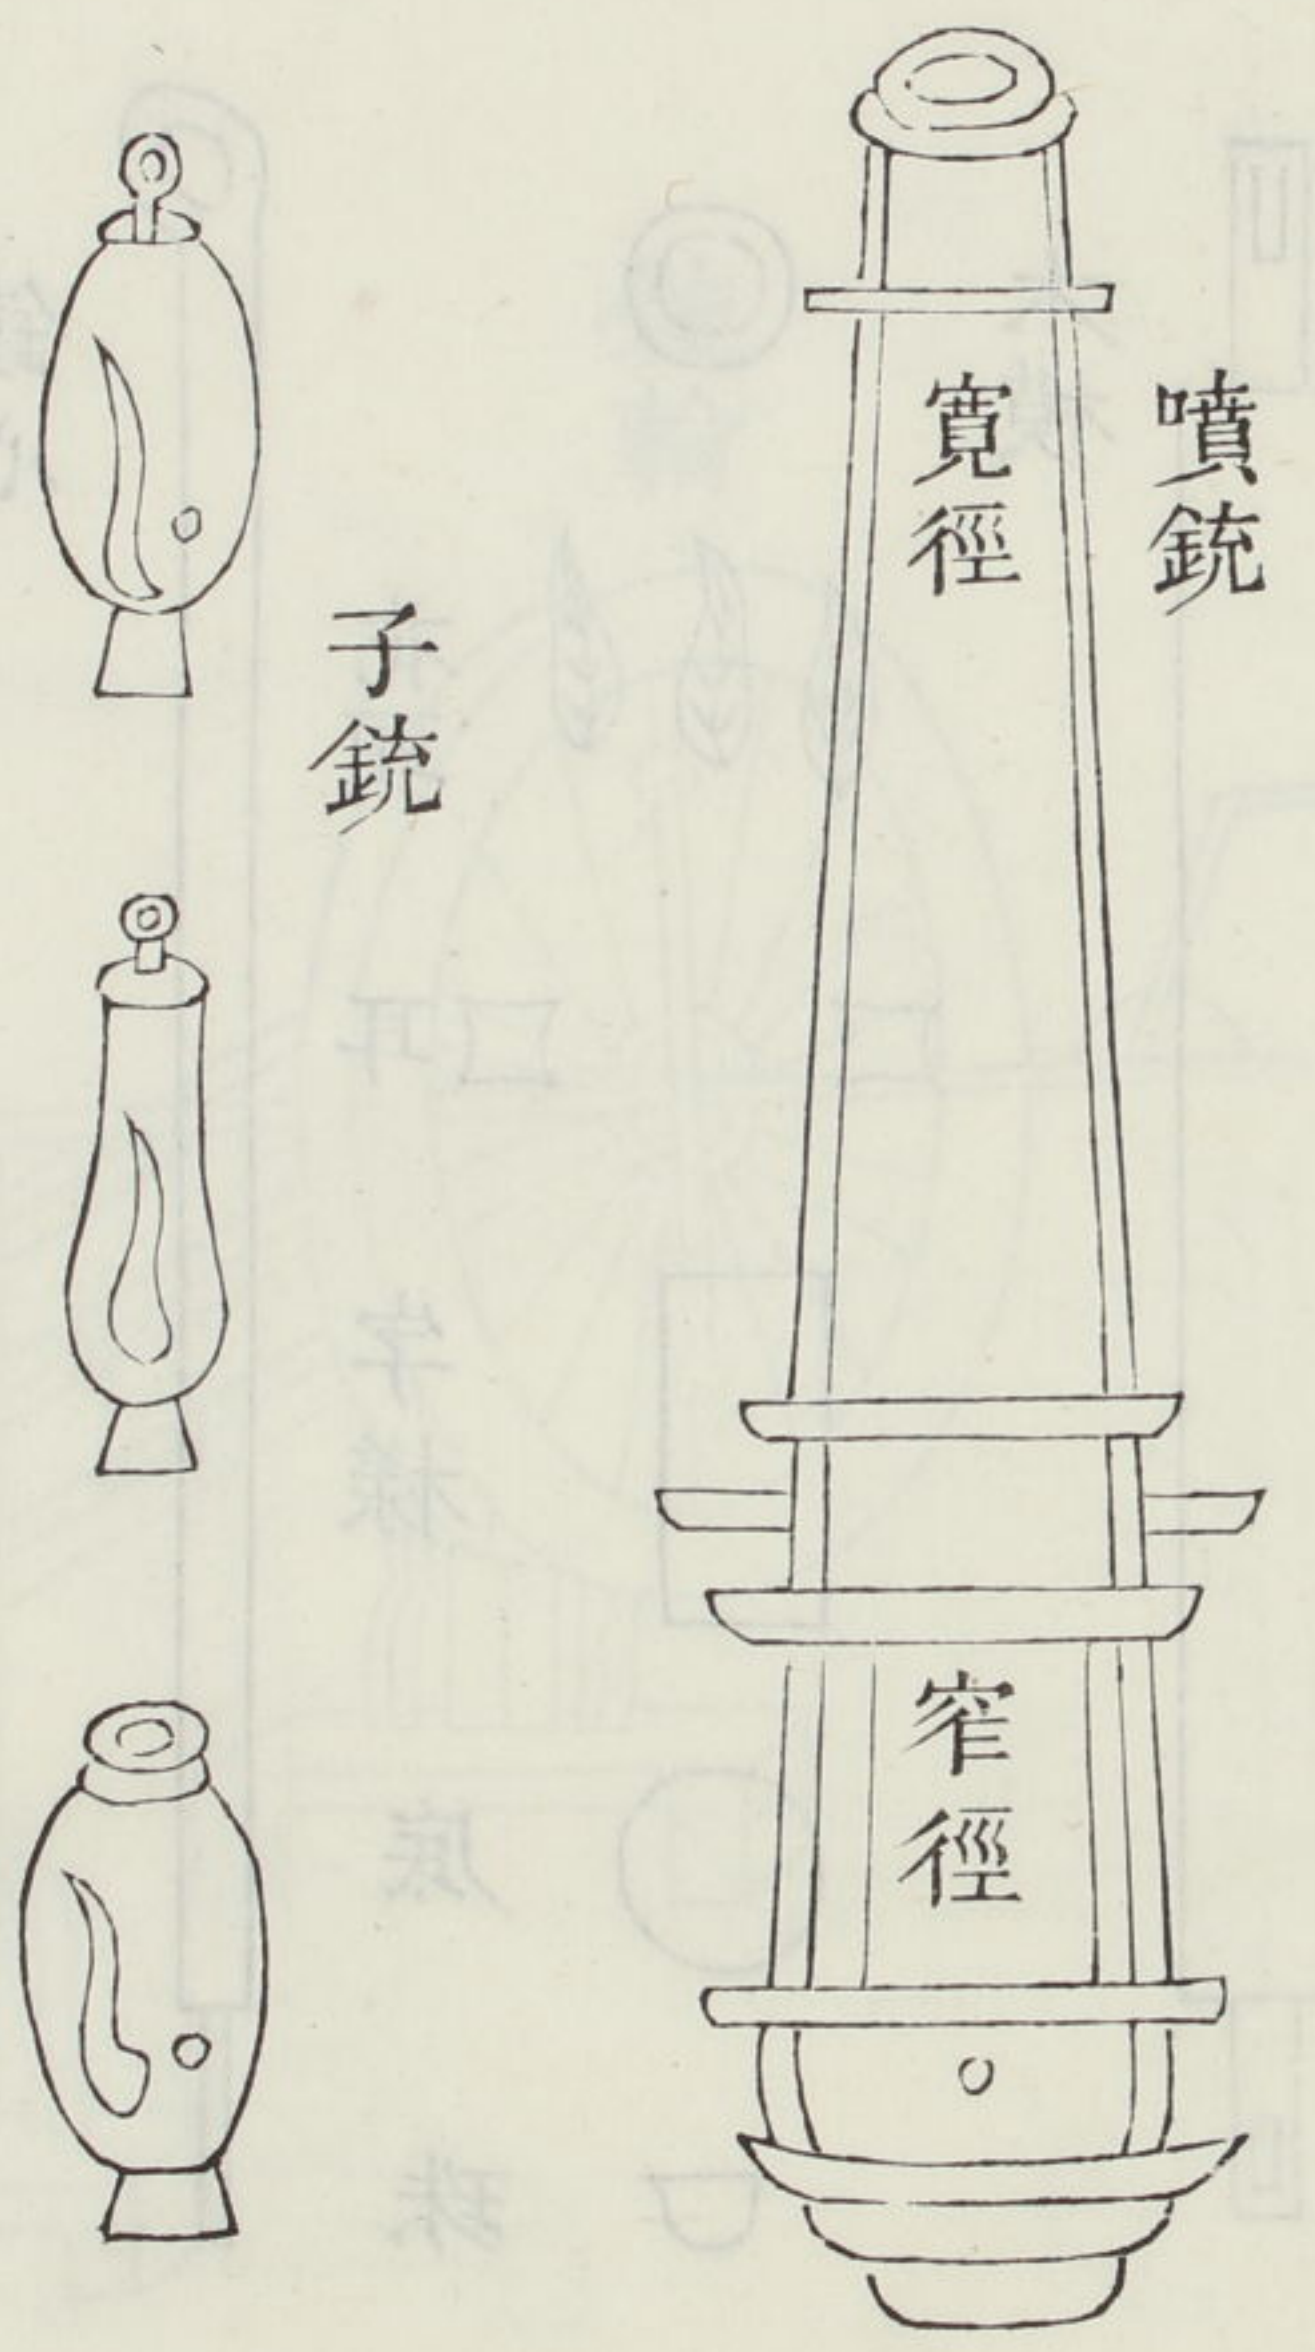 噴銃
寛徑
窄徑
子銃